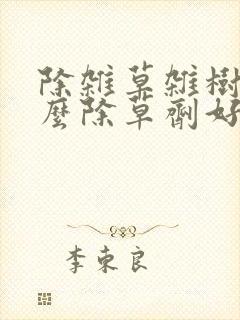 除雜草雜樹
麼除草劑好
李東良